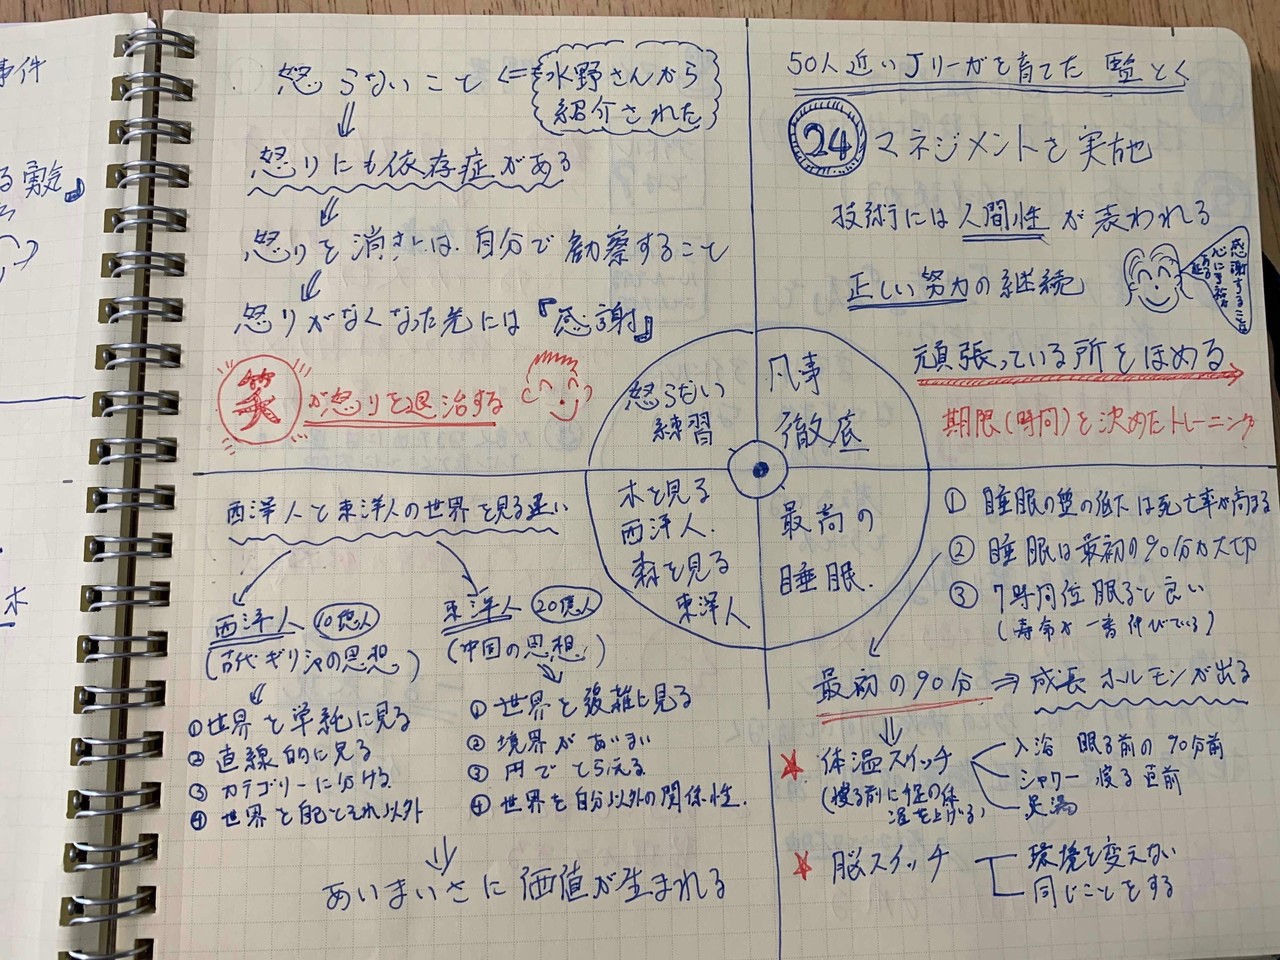 事件
る勇気』
木
怒らないこと ⇐ 水野さんから
紹介された
怒りにも依存症がある
怒りを消すには、自分で勧察すること
怒りがなくなった先には『感謝』
笑 が怒りを退治する
50人近いJリーガを育てた 監とく
24 マネジメントを実施
技術には人間性が表われる
正しい努力の継続
感謝すること
頑張っている所をほめる
期限(時間)を決めたトレーニング
怒らない
練習
凡事
徹底
木を見る
西洋人.
森を見る
東洋人
最高の
睡眠.
西洋人と東洋人の世界を見る違い
西洋人 10億人
(古代ギリシャの思想)
①世界を単純に見る
②直線的に見る
③カテゴリーに分ける
④世界を自己とそれ以外
東洋人 20億人
(中国の思想)
①世界を複雑に見る
②境界があいまい
③円でとらえる
④世界を自分以外の関係性.
あいまいさに価値が生まれる
①睡眠の量の低下は死亡率が高まる
②睡眠は最初の90分が大切
③7時間位眠ると良い
(寿命が一番伸びている)
最初の90分 ⇒ 成長ホルモンが出る
★ 体温スイッチ
(寝る前に足の体
温を上げる)
入浴 眠る前の90分前
シャワー 寝る直前
足湯
★ 脳スイッチ
環境を変えない
同じことをする